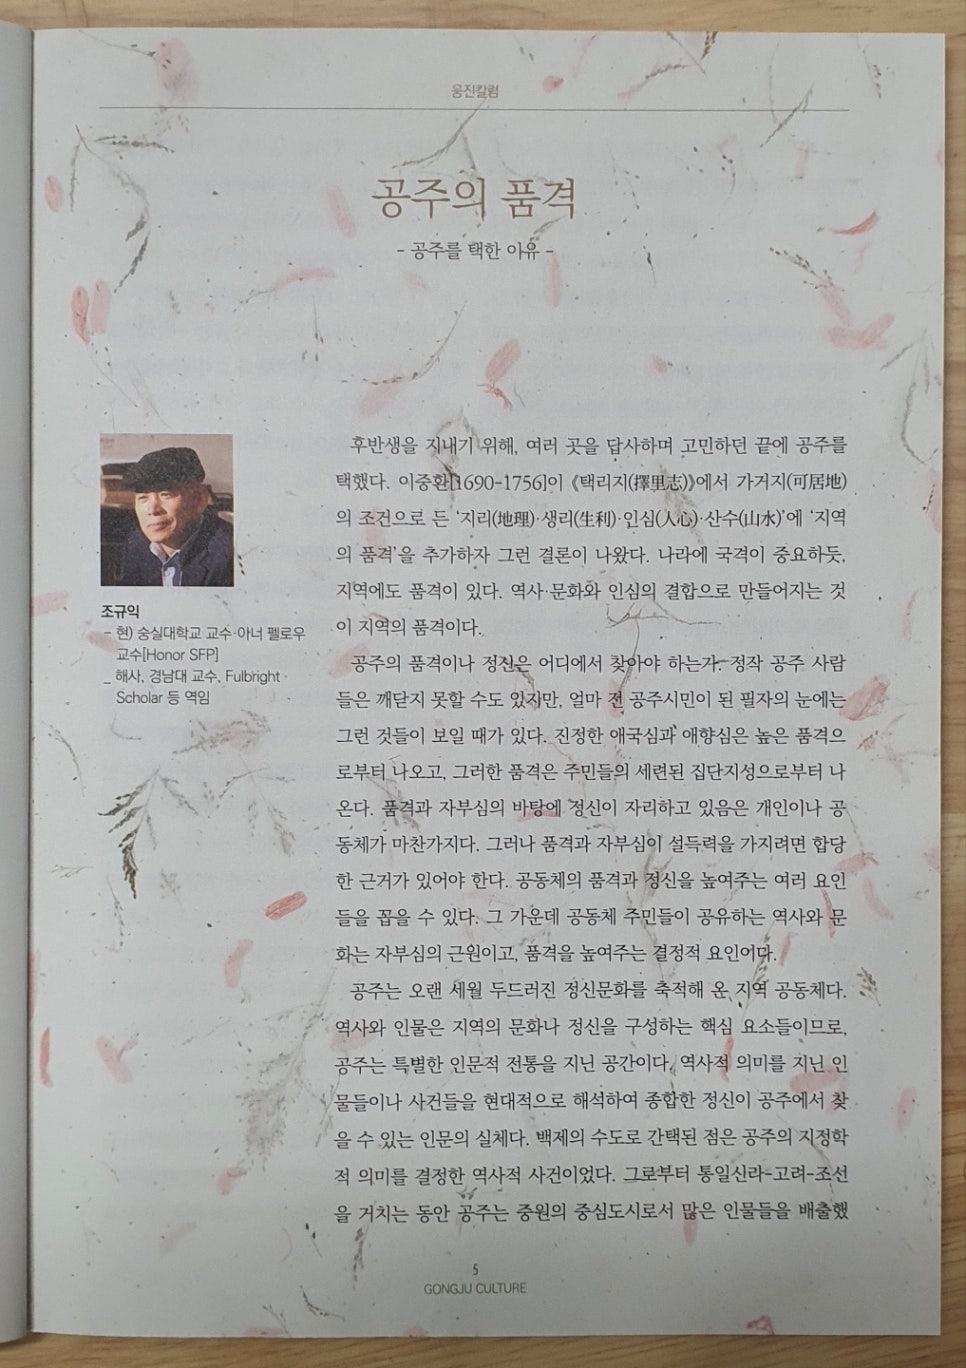 웅진칼럼
공주의 품격
- 공주를 택한 이유 -
조규익
- 현) 숭실대학교 교수·아너 펠로우
교수[Honor SFP]
_ 해사, 경남대 교수, Fulbright
Scholar 등 역임
후반생을 지내기 위해, 여러 곳을 답사하며 고민하던 끝에 공주를
택했다. 이중환[1690-1756]이 《택리지(擇里志)》에서 가거지(可居地)
의 조건으로 든 ‘지리(地理)·생리(生利)·인심(人心)·산수(山水)’에 ‘지역
의 품격’을 추가하자 그런 결론이 나왔다. 나라에 국격이 중요하듯,
지역에도 품격이 있다. 역사·문화와 인심의 결합으로 만들어지는 것
이 지역의 품격이다.
공주의 품격이나 정신은 어디에서 찾아야 하는가. 정작 공주 사람
들은 깨닫지 못할 수도 있지만, 얼마 전 공주시민이 된 필자의 눈에는
그런 것들이 보일 때가 있다. 진정한 애국심과 애향심은 높은 품격으
로부터 나오고, 그러한 품격은 주민들의 세련된 집단지성으로부터 나
온다. 품격과 자부심의 바탕에 정신이 자리하고 있음은 개인이나 공
동체가 마찬가지다. 그러나 품격과 자부심이 설득력을 가지려면 합당
한 근거가 있어야 한다. 공동체의 품격과 정신을 높여주는 여러 요인
들을 꼽을 수 있다. 그 가운데 공동체 주민들이 공유하는 역사와 문
화는 자부심의 근원이고, 품격을 높여주는 결정적 요인이다.
공주는 오랜 세월 두드러진 정신문화를 축적해 온 지역 공동체다.
역사와 인물은 지역의 문화나 정신을 구성하는 핵심 요소들이므로,
공주는 특별한 인문적 전통을 지닌 공간이다. 역사적 의미를 지닌 인
물들이나 사건들을 현대적으로 해석하여 종합한 정신이 공주에서 찾
을 수 있는 인문의 실체다. 백제의 수도로 간택된 점은 공주의 지정학
적 의미를 결정한 역사적 사건이었다. 그로부터 통일신라-고려-조선
을 거치는 동안 공주는 중원의 중심도시로서 많은 인물들을 배출했
5
GONGJU CULTURE